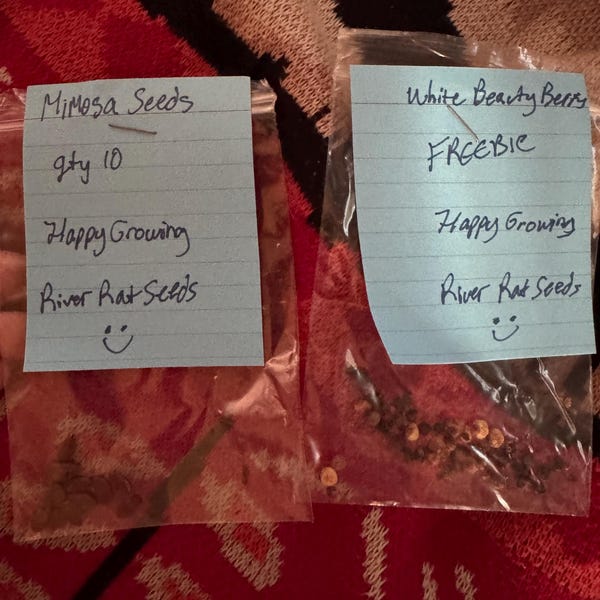 Mimosa Seeds
qty 10
Happy Growing
River Rat Seeds
White Beauty Berry
FREEBIE
Happy Growing
River Rat Seeds